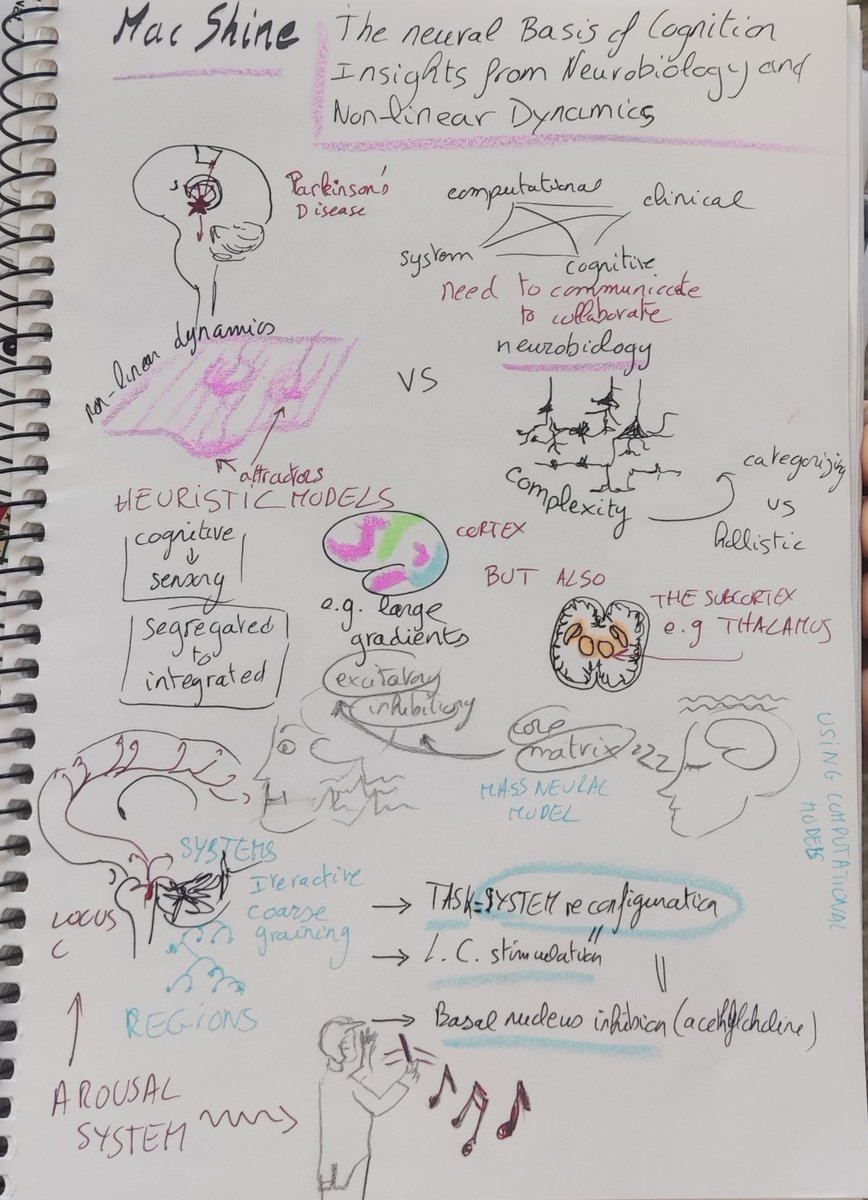 Mac Shine
The neural Basis of Cognition
Insights from Neurobiology and
Non-linear Dynamics
Parkinson's
Disease
computational
clinical
system
cognitive
need to communicate
to collaborate
non-linear dynamics
VS
neurobiology
attractors
HEURISTIC MODELS
complexity
categorizing
vs
hollistic
cognitive
sensory
CORTEX
BUT ALSO
THE SUBCORTEX
e.g THALAMUS
e.g. large
gradients
segregated
to
integrated
excitatory
inhibitiory
core
matrix
zzz
MASS NEURAL
MODEL
USING COMPUTATIONAL
MODELS
SYSTEMS
Iteractive
coarse
graining
REGIONS
LOCUS
C
TASK = SYSTEM reconfiguration
L.C. stimulation
Basal nucleus inhibion (acethylcholine)
AROUSAL
SYSTEM